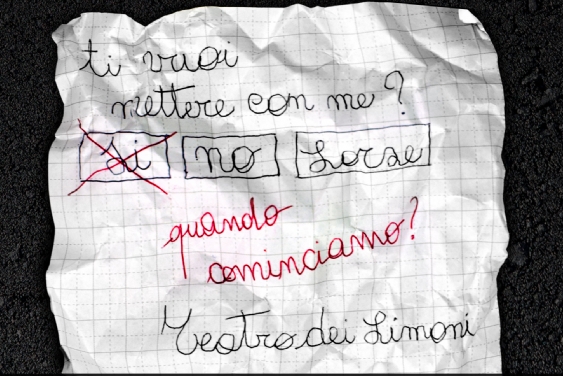 ti vuoi
mettere con me?
Si no forse
quando
cominciamo?
Teatro dei Limoni